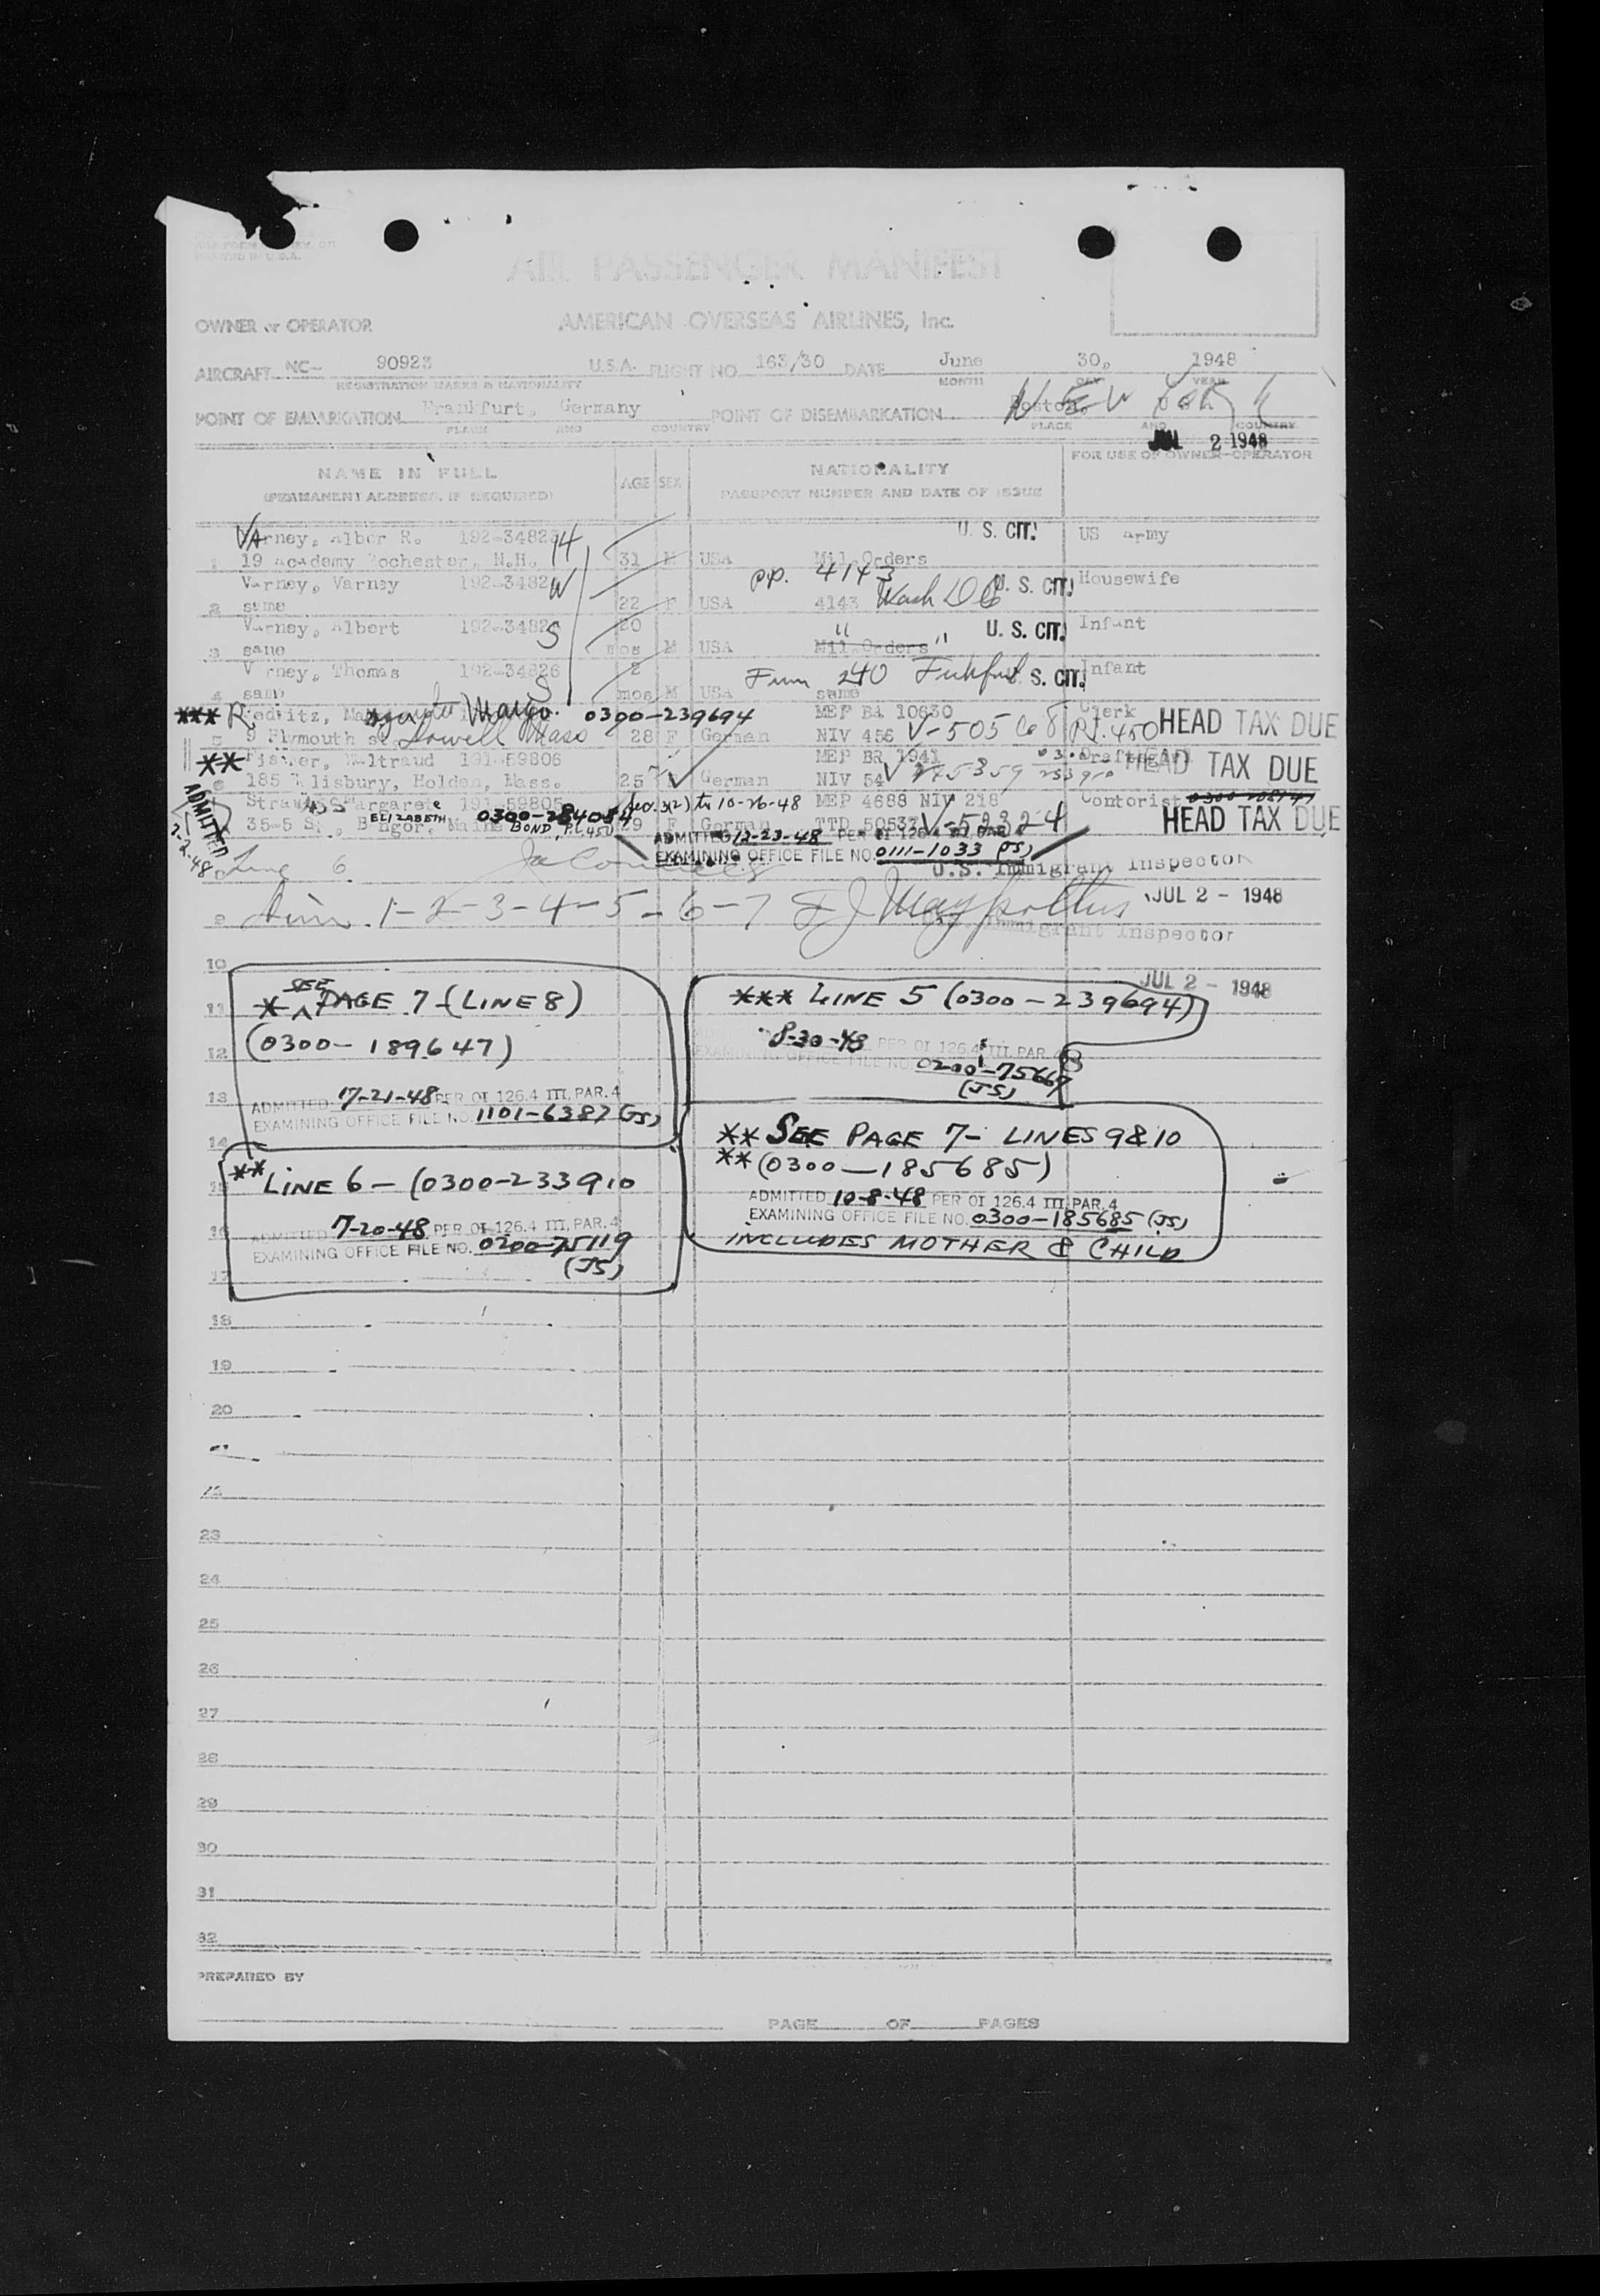 PRINTED IN U.S.A.
AIR PASSENGER MANIFEST
OWNER or OPERATOR AMERICAN OVERSEAS AIRLINES, Inc.
AIRCRAFT NC- 90923 U.S.A. FLIGHT NO. 163/30 DATE June 30, 1948
REGISTRATION MARKS & NATIONALITY MONTH DAY YEAR
POINT OF EMBARKATION Frankfurt, Germany POINT OF DISEMBARKATION Boston, USA NEW YORK
PLACE AND COUNTRY PLACE AND COUNTRY
JUL 2 1948
NAME IN FULL AGE SEX NATIONALITY FOR USE OF OWNER-OPERATOR
(PERMANENT ADDRESS, IF REQUIRED) PASSPORT NUMBER AND DATE OF ISSUE
Varney, Albor R. 192-3482 H U. S. CIT. US Army
1 19 Academy Rochester, N.H. 31 M USA Mil.Orders
Varney, Varney 192-3482 W p.p. 4143 U. S. CIT. Housewife
2 same 22 F USA 4143 Wash DC
Varney, Albert 192-3482 S 20 " U. S. CIT. Infant
3 sane mos M USA Mil.Orders "
Varney, Thomas 192-34826 S 2 240 U. S. CIT. Infant
4 same mos M USA same
*** Margo 0300-239694 MEP BA 10630 Clerk HEAD TAX DUE
5 9 Plymouth st Lowell Mass 28 F German NIV 456 V-505 Pt. 450
** Fisher, Waltraud 191-59806 MEP BR 1941 HEAD TAX DUE
6 185 Salisbury, Holden, Mass. 25 F German NIV 54 V 245359
Strauss Margarete 191-59805 Sec. 3(2) to 10-26-48 MEP 4688 NIV 218 Contorist
35-5 St, Bangor, Maine ELIZABETH 0300-284084 BOND, P.C. 450 29 F German TTD 50537 V-52324 HEAD TAX DUE
ADMITTED 7-2-48
ADMITTED 12-23-48 PER OI 126.4 III, PAR. 4
EXAMINING OFFICE FILE NO. 0111-1033 (JS)
Line 6 U.S. Immigrant Inspector
9 1-2-3-4-5-6-7 JUL 2 - 1948
Immigrant Inspector
10
JUL 2 - 1948
11 * SEE PAGE 7-(LINE 8)
12 (0300-189647)
13 ADMITTED 7-21-48 PER OI 126.4 III, PAR. 4
EXAMINING OFFICE FILE NO. 1101-6387 (JS)
*** LINE 5 (0300-239694)
8-30-48 PER OI 126.4 III, PAR. 4
EXAMINING OFFICE FILE NO. 0200-75667
(JS)
14
15 ** LINE 6 - (0300-233910
16 ADMITTED 7-20-48 PER OI 126.4 III, PAR. 4
EXAMINING OFFICE FILE NO. 0200-75119
(JS)
17
** SEE PAGE 7- LINES 9 & 10
** (0300-185685)
ADMITTED 10-8-48 PER OI 126.4 III, PAR. 4
EXAMINING OFFICE FILE NO. 0300-185685 (JS)
INCLUDES MOTHER & CHILD
18
19
20
23
24
25
26
27
28
29
30
31
32
PREPARED BY
PAGE OF PAGES